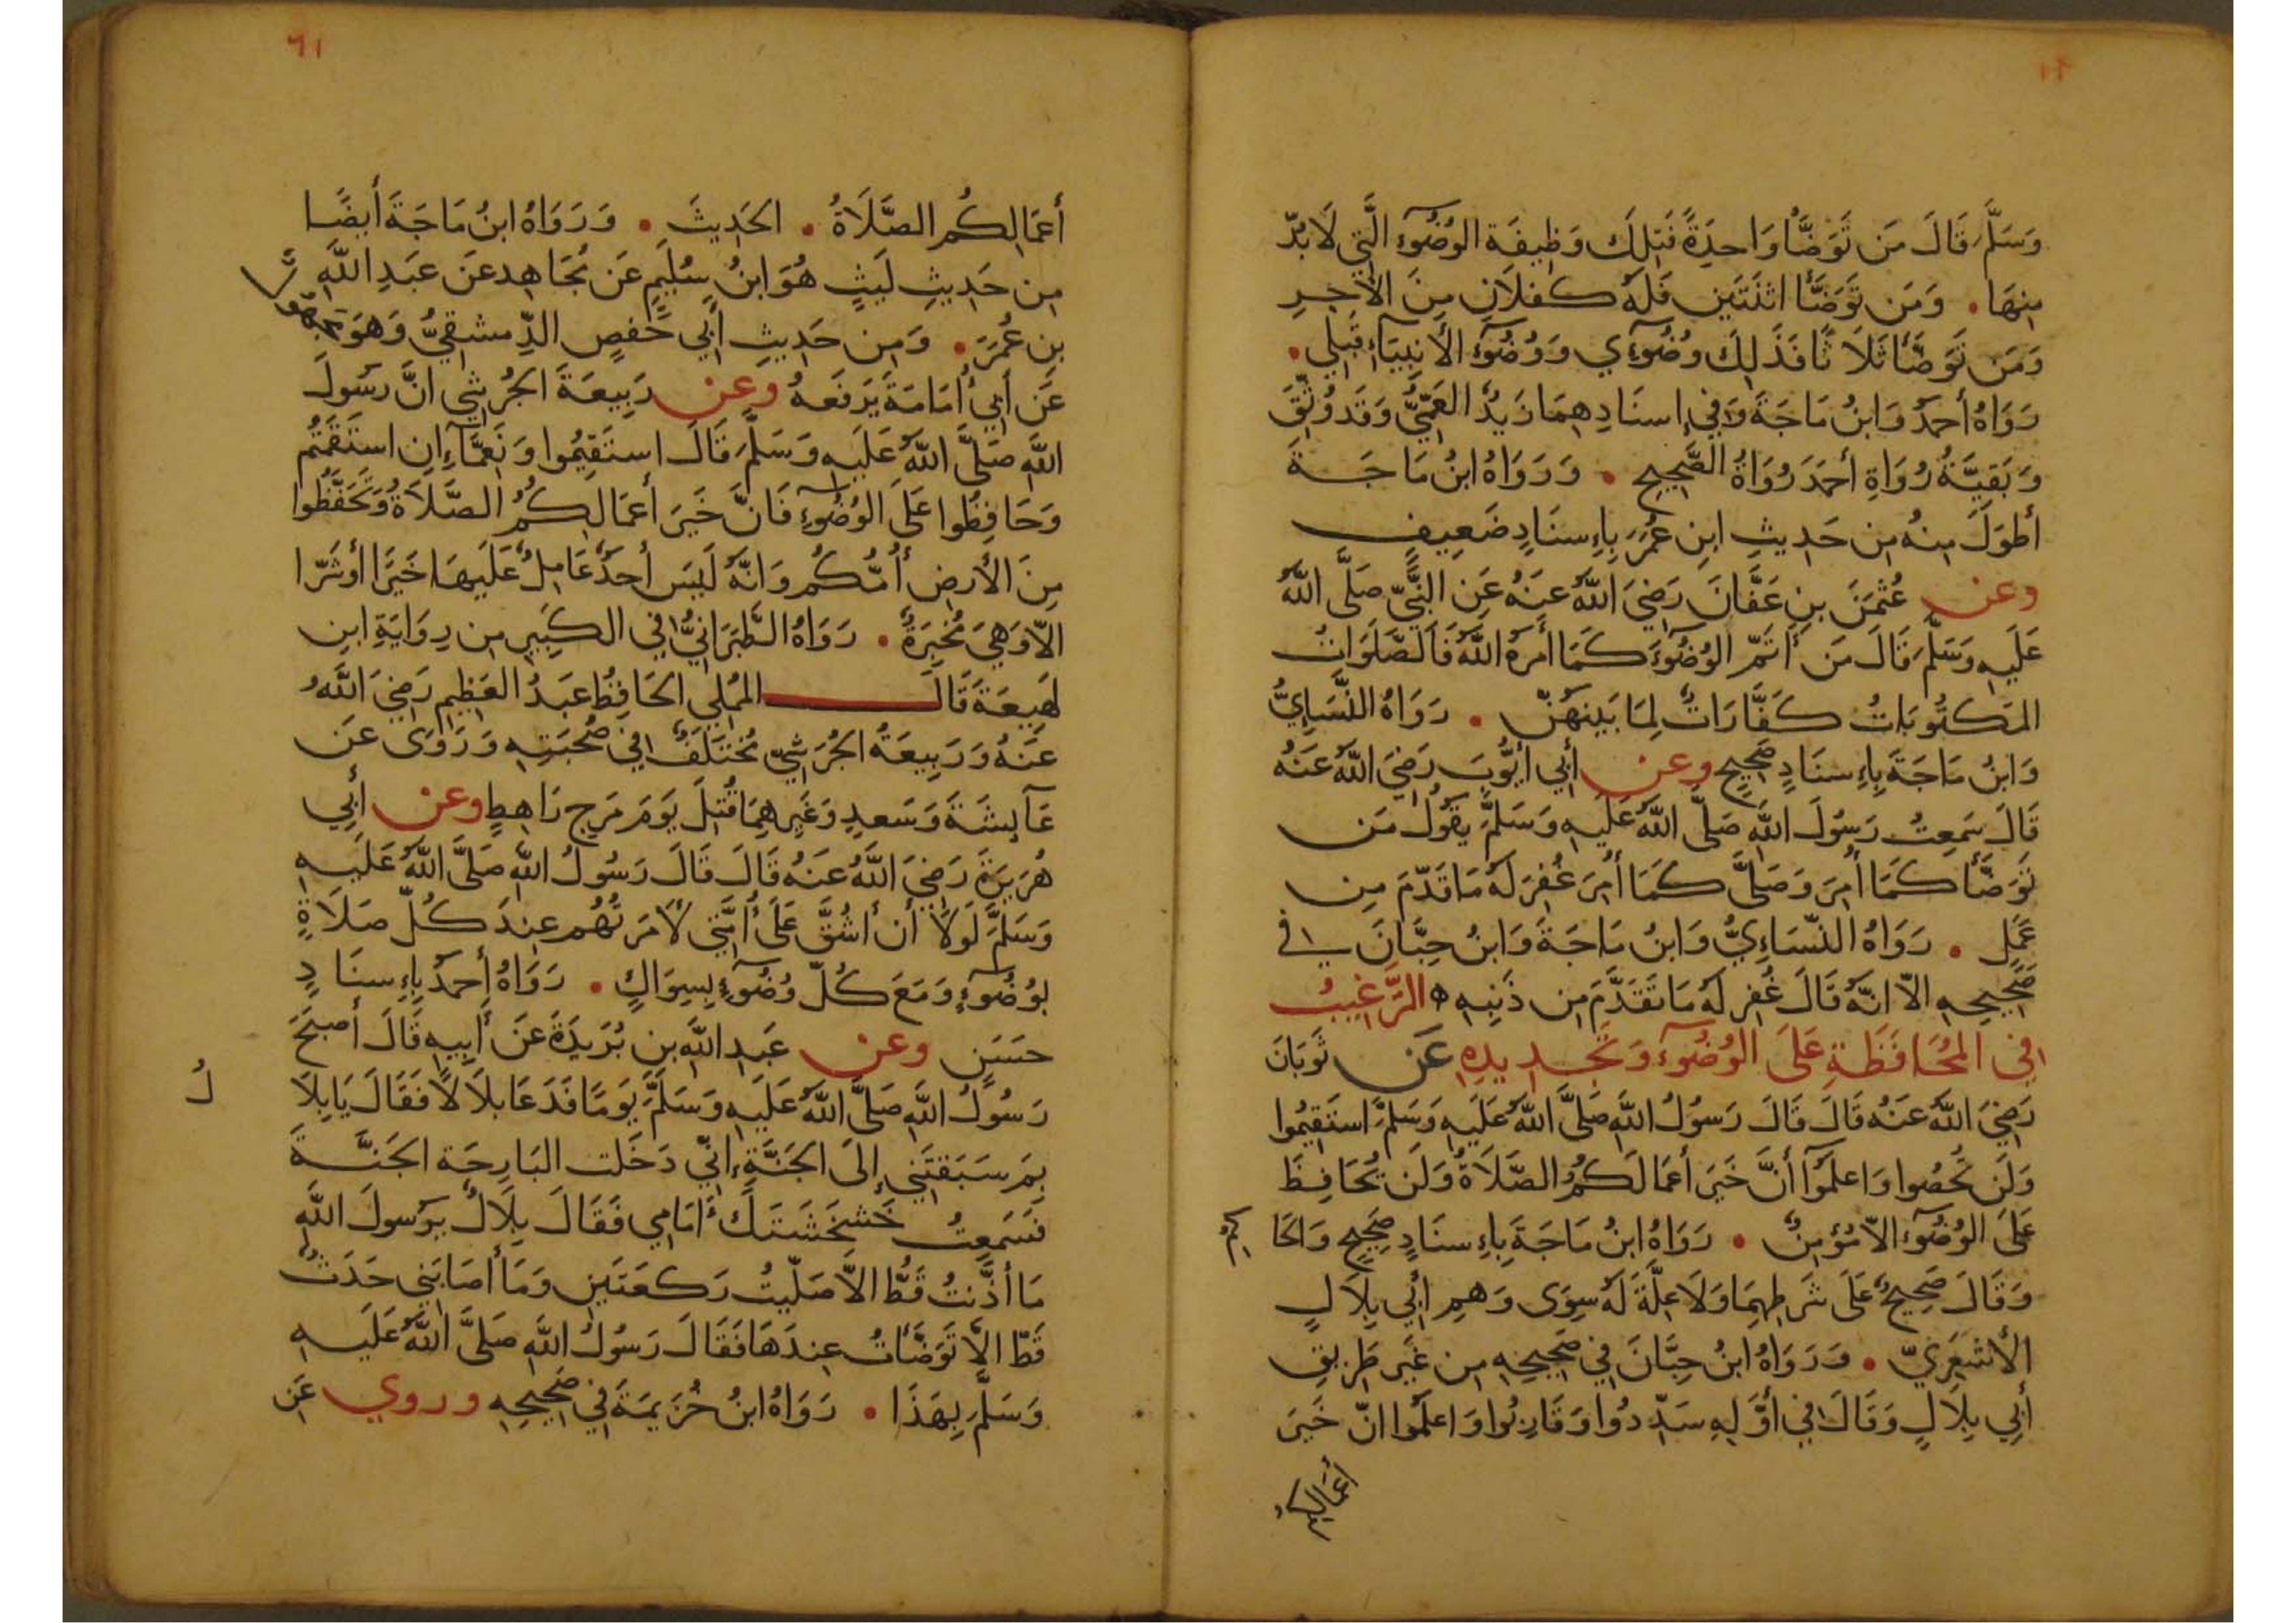 وَسَلَّمَ قَالَ مَن تَوَضَّأَ وَاحِدَةً فَتِلكَ وَظِيفَة الوُضُوءِ الَّتِي لَا بُدّ
مِنهَا • وَمَن تَوَضَّأَ اثنَتَين فَلَهُ كفلَانِ مِنَ الأجرِ
وَمَن تَوَضَّأَ ثَلَاثًا فَذَلِكَ وُضُوءِي وَوُضُوءُ الأنبِيَاءِ قَبلِي •
رَوَاهُ أحمَدُ وَابنُ مَاجَةَ وَفِي إسنَادِهِمَا زَيدٌ العَمِّيُّ وَقَد وُثِّقَ
وَبَقِيَّةُ رُوَاةِ أحمَدَ رُوَاةُ الصَّحِيحِ • وَرَوَاهُ ابنُ مَاجَةَ
أطوَلَ مِنهُ مِن حَدِيثِ ابنِ عُمَرَ بِإسنَادٍ ضَعِيفٍ
وعن عُثمَنَ بنِ عَفَّانَ رَضِيَ اللَّهُ عَنهُ عَنِ النَّبِيِّ صَلَّى اللَّهُ
عَلَيهِ وَسَلَّمَ قَالَ مَن أتَمّ الوُضُوءَ كَمَا أمَرَهُ اللَّهُ فَالصَّلَوَاتُ
المَكتُوبَاتُ كَفَّارَاتٌ لِمَا بَينَهُنّ • رَوَاهُ النَّسَاءِيُّ
وَابنُ مَاجَةَ بِإسنَادٍ صَحِيحٍ وعن أبي أيُّوبَ رَضِيَ اللَّهُ عَنهُ
قَالَ سَمِعتُ رَسُولَ اللَّهِ صَلَّى اللَّهُ عَلَيهِ وَسَلَّمَ يَقُولُ مَن
تَوَضَّأَ كَمَا أُمِرَ وَصَلَّى كَمَا أُمِرَ غُفِرَ لَهُ مَا قَدّمَ مِن
عَمَلٍ • رَوَاهُ النّسَاءِيُّ وَابنُ مَاجَةَ وَابنُ حِبَّانَ في
صَحِيحِهِ الاّ انّهُ قَالَ غُفِرَ لَهُ مَا تَقَدَّمَ مِن ذَنبِهِ ه الترَّغِيبُ
فِي المُحَافَظَةِ عَلَى الوُضُوءِ وَتَجدِيدِهِ عَن ثَوبَانَ
رَضِيَ اللَّهُ عَنهُ قَالَ قَالَ رَسُولُ اللَّهِ صَلَّى اللَّهُ عَلَيهِ وَسَلَّمَ استَقِيمُوا
وَلَن تُحصُوا وَاعلَمُوا أنَّ خَيرَ أعمَالِكُمُ الصَّلَاةُ وَلَن يُحَافِظَ
عَلَى الوُضُوءِ الاّ مُؤمِنٌ • رَوَاهُ ابنُ مَاجَةَ بِإسنَادٍ صَحِيحٍ وَالحَا
كِمُ
وَقَالَ صَحِيحٌ عَلَى شَرطِهِمَا وَلَا عِلَّةَ لَهُ سِوَى وَهمِ أبِي بِلَالٍ
الأشعَرِيّ • وَرَوَاهُ ابنُ حِبَّانَ فِي صَحِيحِهِ مِن غَيرِ طَرِيقِ
أبِي بِلَالٍ وَقَالَ فِي أوَّلِهِ سَدِّدُوا وَقَارِبُوا وَاعلَمُوا انّ خَيرَ
أعمَالِكُم
٦١
أعمَالِكُم الصَّلَاةُ • الحَدِيثَ • وَرَوَاهُ ابنُ مَاجَةَ أيضًا
مِن حَدِيثِ لَيثٍ هُوَ ابنُ سُلَيمٍ عَن مُجَاهِد عَن عَبدِ اللَّهِ
بنِ عُمَرَ • وَمِن حَدِيثِ أبِي حَفصٍ الدِّمشقِيُّ وَهوَ
عَن أبِي أُمَامَةَ يَرفَعهُ وعن رَبِيعَةَ الجُرَشِي انَّ رَسُولَ
اللَّهِ صَلَّى اللَّهُ عَلَيهِ وَسَلَّمَ قَالَ استَقِيمُوا وَنَعِمَّا إِنِ استَقَمتُم
وَحَافِظُوا عَلَى الوُضُوءِ فَانَّ خَيرَ أعمَالِكُمُ الصَّلَاةُ وَتَحَفَّظُوا
مِنَ الأرضِ أُمّكُم وَانّهُ لَيسَ أحَدٌ عَامِلٌ عَلَيهَا خَيرًا أو شَرّا
الاّ وَهِيَ مُخبِرَةٌ • رَوَاهُ الطَّبَرَانِيُّ فِي الكَبِيرِ مِن رِوَايَةِ ابنِ
لَهِيعَةَ قَالَ المُملِي الحَافِظُ عَبدُ العَظِيمِ رَضِيَ اللَّهُ
عَنهُ وَرَبِيعَةُ الجُرَشِيّ مُختَلَفٌ فِي صُحبَتِهِ وَرَوَى عَن
عَآيِشَةَ وَسَعدٍ وَغَيرِهِمَا قُتِلَ يَومَ مَرجِ رَاهِطٍ وعن أبِي
هُرَيرَةَ رَضِيَ اللَّهُ عَنهُ قَالَ قَالَ رَسُولُ اللَّهِ صَلَّى اللَّهُ عَلَيهِ
وَسَلَّمَ لَولَا أن أشُقَّ عَلَى أُمَّتِي لَأمَرتُهُم عِندَ كُلِّ صَلَاةٍ
بِوُضُوءٍ وَمَعَ كُلّ وُضُوءٍ بِسِوَاكٍ • رَوَاهُ أحمَدُ بِإِسنَادٍ
حَسَنٍ وعن عَبدِ اللَّهِ بنِ بُرَيدَةَ عَن أَبِيهِ قَالَ أصبَحَ
رَسُولُ اللَّهِ صَلَّى اللَّهُ عَلَيهِ وَسَلَّمَ يَومًا فَدَعَا بِلَالًا فَقَالَ يَا بِلَا
لُ
بِمَ سَبَقتَنِي إلَى الجَنَّةِ إنِّي دَخَلت البَارِحَة الجَنَّةَ
فَسَمِعتُ خَشخَشَتَكَ أمَامِي فَقَالَ بِلَالٌ يرَسُولَ اللَّهِ
مَا أذَّنتُ قَطُّ الاّ صَلّيتُ رَكعَتَينِ وَمَا أصَابَنِي حَدَثٌ
قَطّ الاَّ تَوَضَّأتُ عِندَهَا فَقَالَ رَسُولُ اللَّهِ صَلَّى اللَّهُ عَلَيهِ
وَسَلَّمَ بِهَذَا • رَوَاهُ ابنُ خُزَيمَةَ فِي صَحِيحِهِ وروي عَن